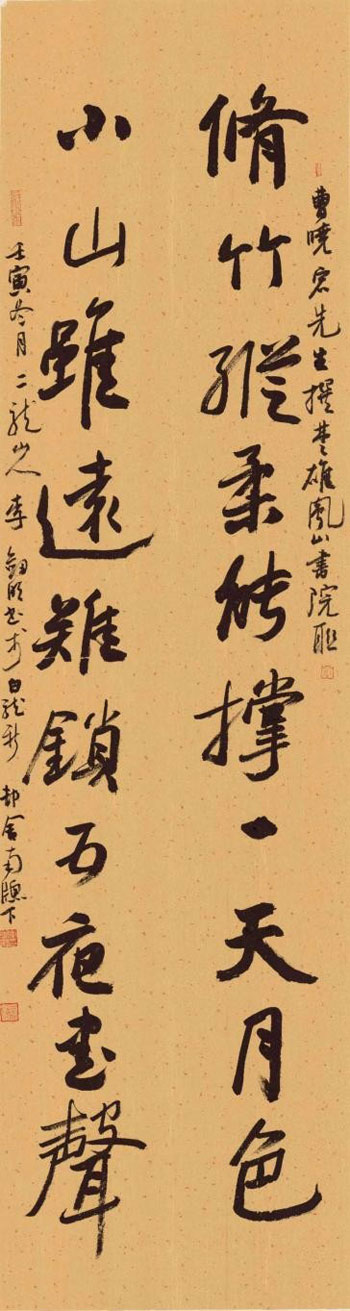 曹曉宏先生撰楚雄鳳山書院聯
脩竹縱柔能撐一天月色
小山雖遠難鎖五夜書聲
壬寅冬月二龍山人李劍明書於白龍新邨舍南牕下